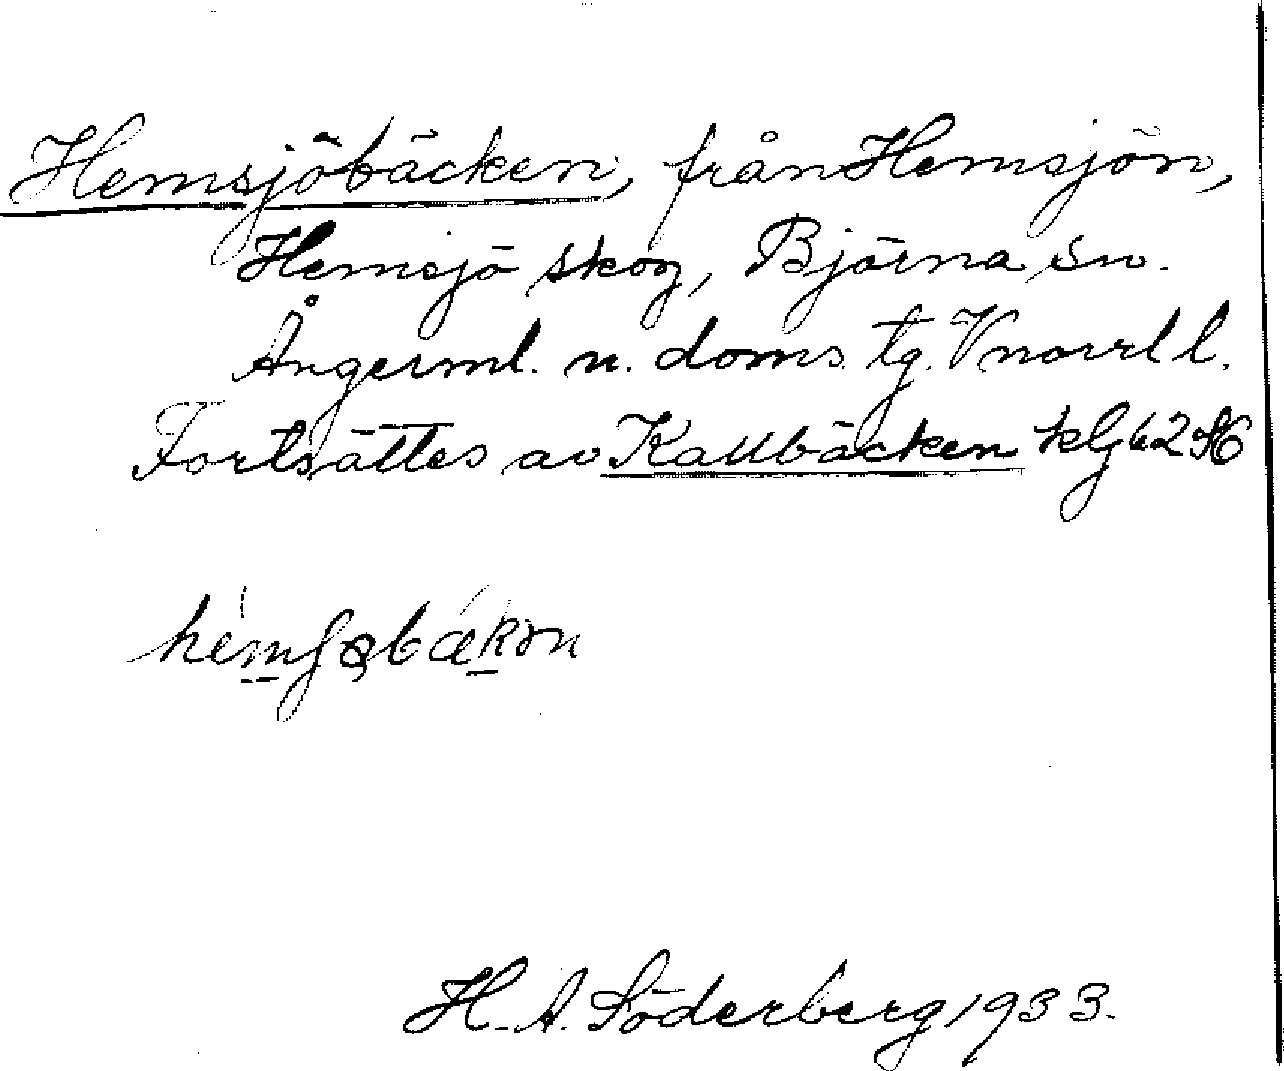 Hemsjöbäcken, från Hemsjön,
Hemsjö skog, Björna sn.
Ångerml. n. doms. tg. Vnorrl l.
Fortsättes av Kallbäcken klg 62
H. A. Söderberg 1933.